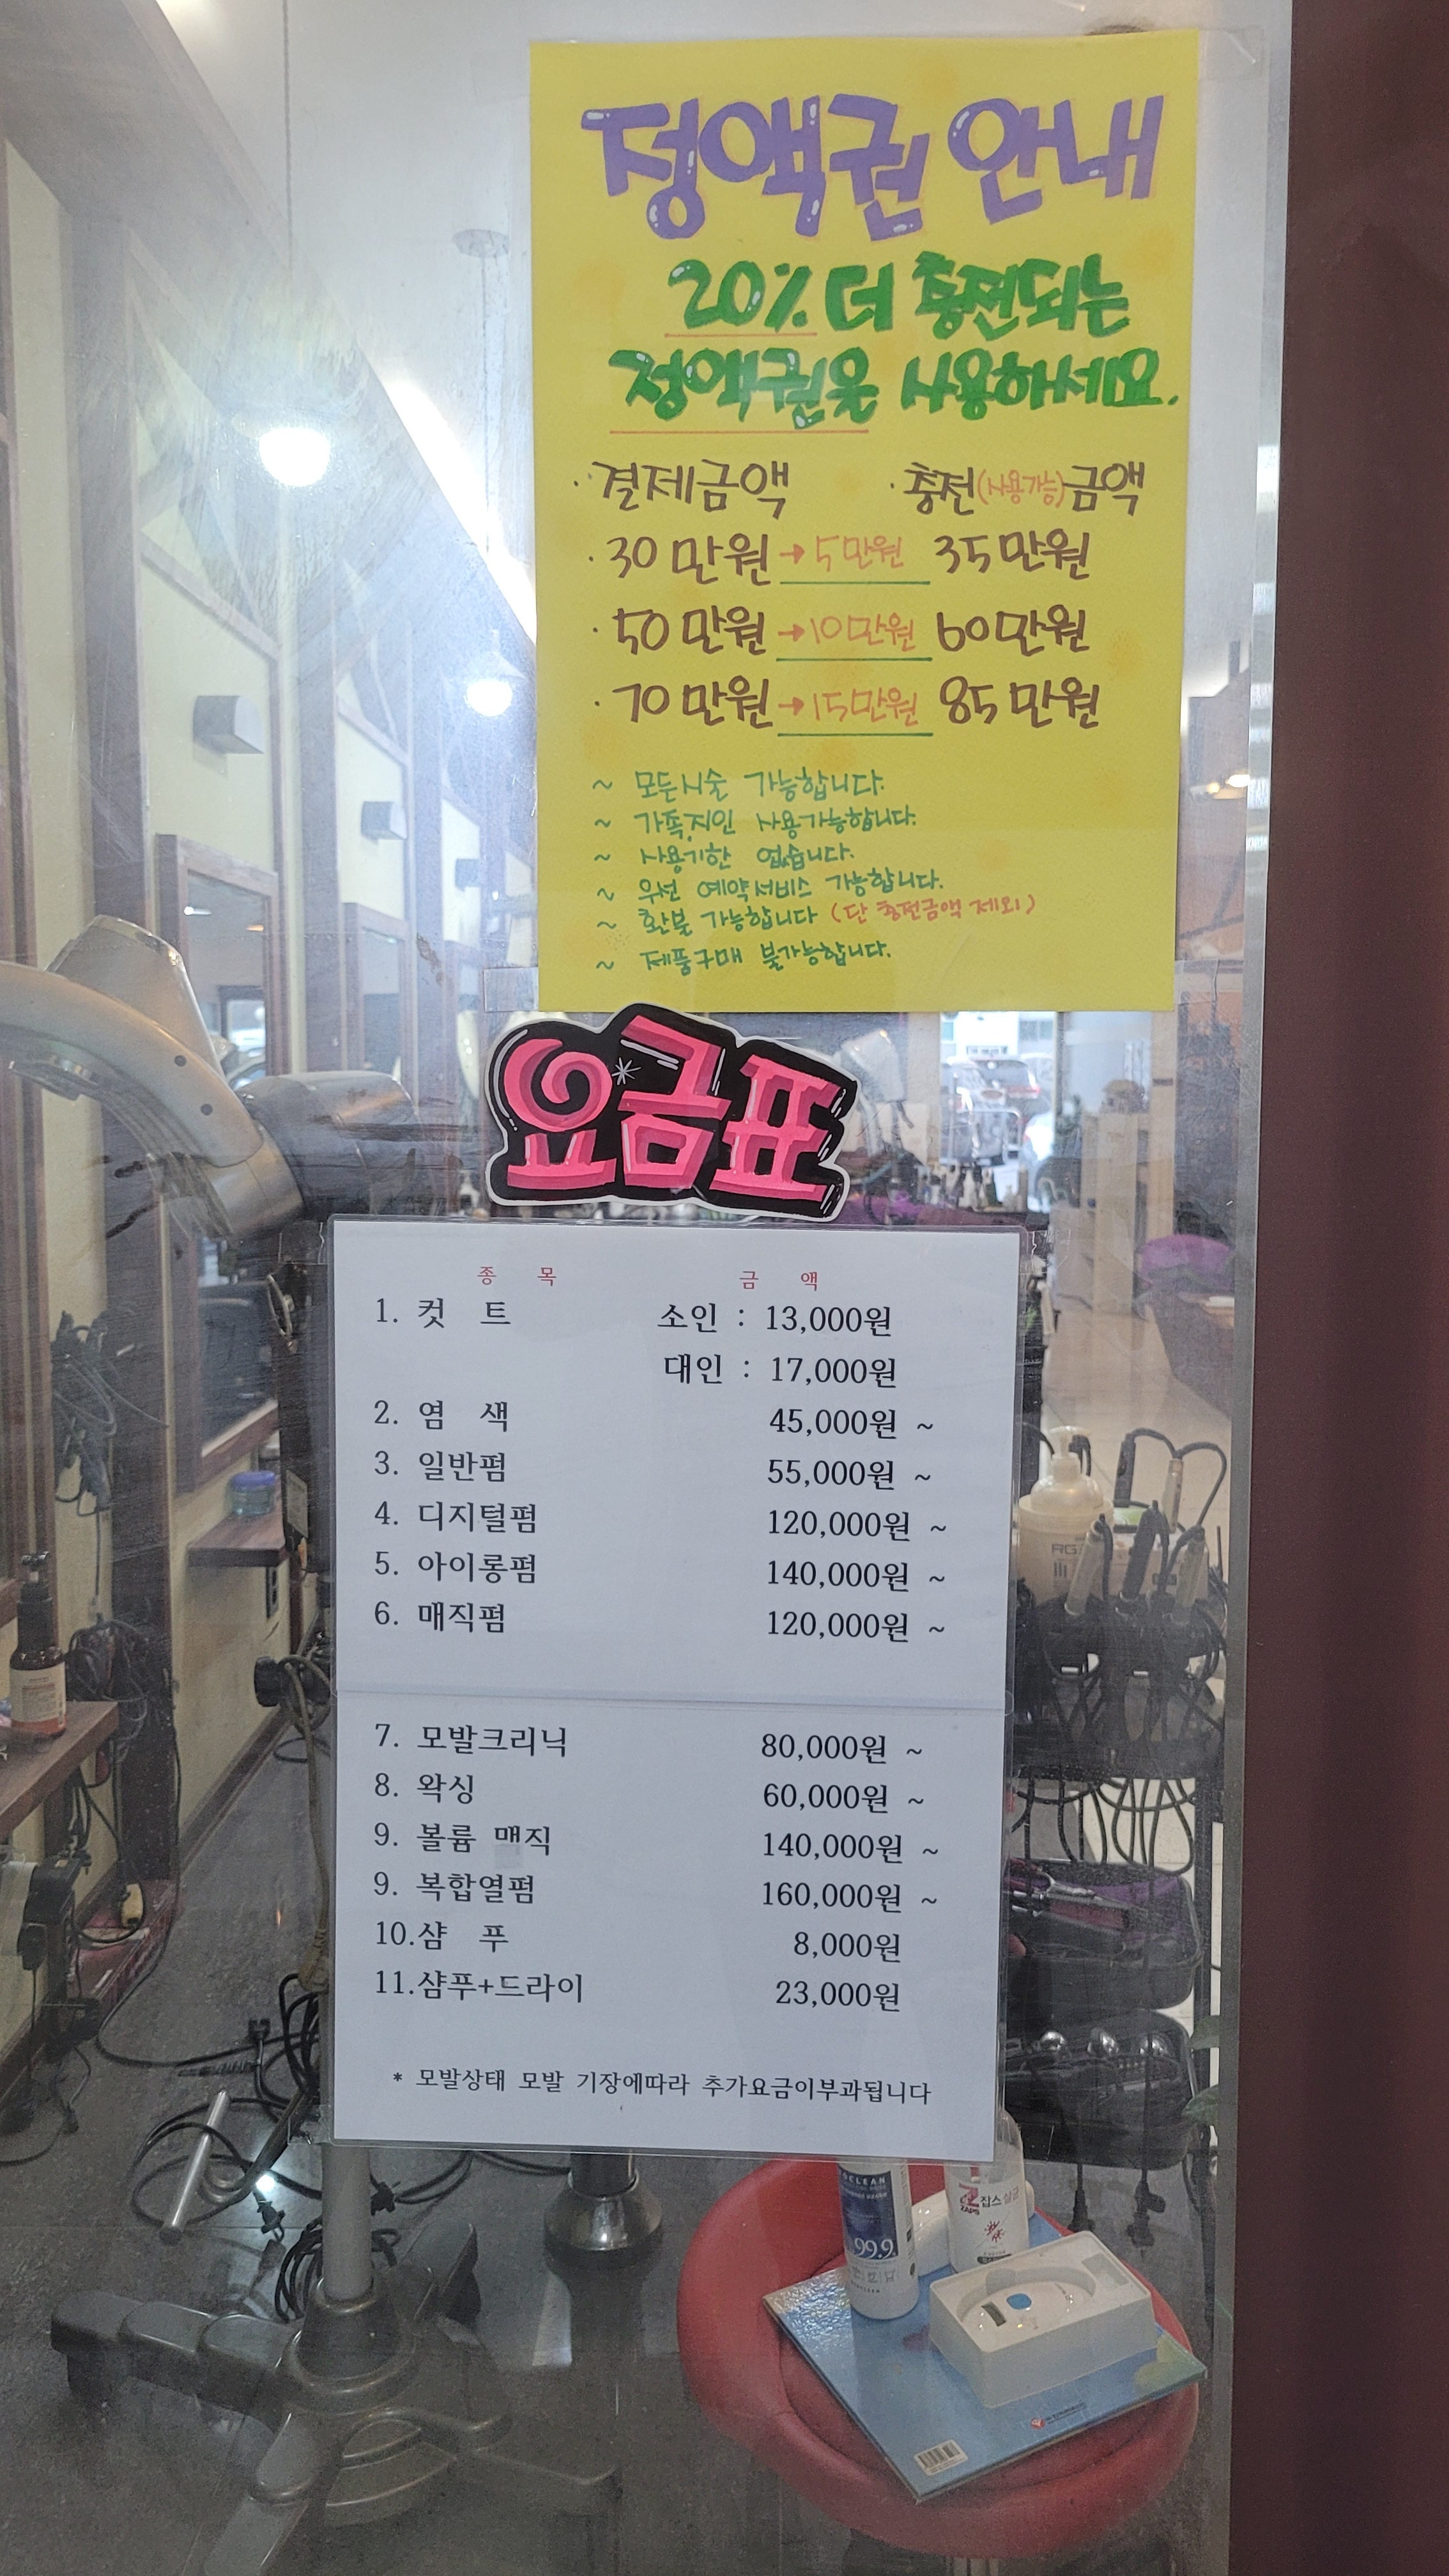 정액권 안내
20% 더 충전되는
정액권을 사용해세요.
·결제금액 ·충전(사용가능)금액
·30만원 →5만원 35만원
·50만원 →10만원 60만원
·70만원 →15만원 85만원
~ 모든시술 가능합니다.
~ 가족,지인 사용가능합니다.
~ 사용기한 없습니다.
~ 우선 예약서비스 가능합니다.
~ 환불 가능합니다 (단 충전금액 제외)
~ 제품구매 불가능합니다.
요금표
종 목 금 액
1. 컷 트 소인 : 13,000원
대인 : 17,000원
2. 염 색 45,000원 ~
3. 일반펌 55,000원 ~
4. 디지털펌 120,000원 ~
5. 아이롱펌 140,000원 ~
6. 매직펌 120,000원 ~
7. 모발크리닉 80,000원 ~
8. 왁싱 60,000원 ~
9. 볼륨 매직 140,000원 ~
9. 복합열펌 160,000원 ~
10.샴 푸 8,000원
11.샴푸+드라이 23,000원
* 모발상태 모발 기장에따라 추가요금이부과됩니다
99.9
잡스
ZAPS